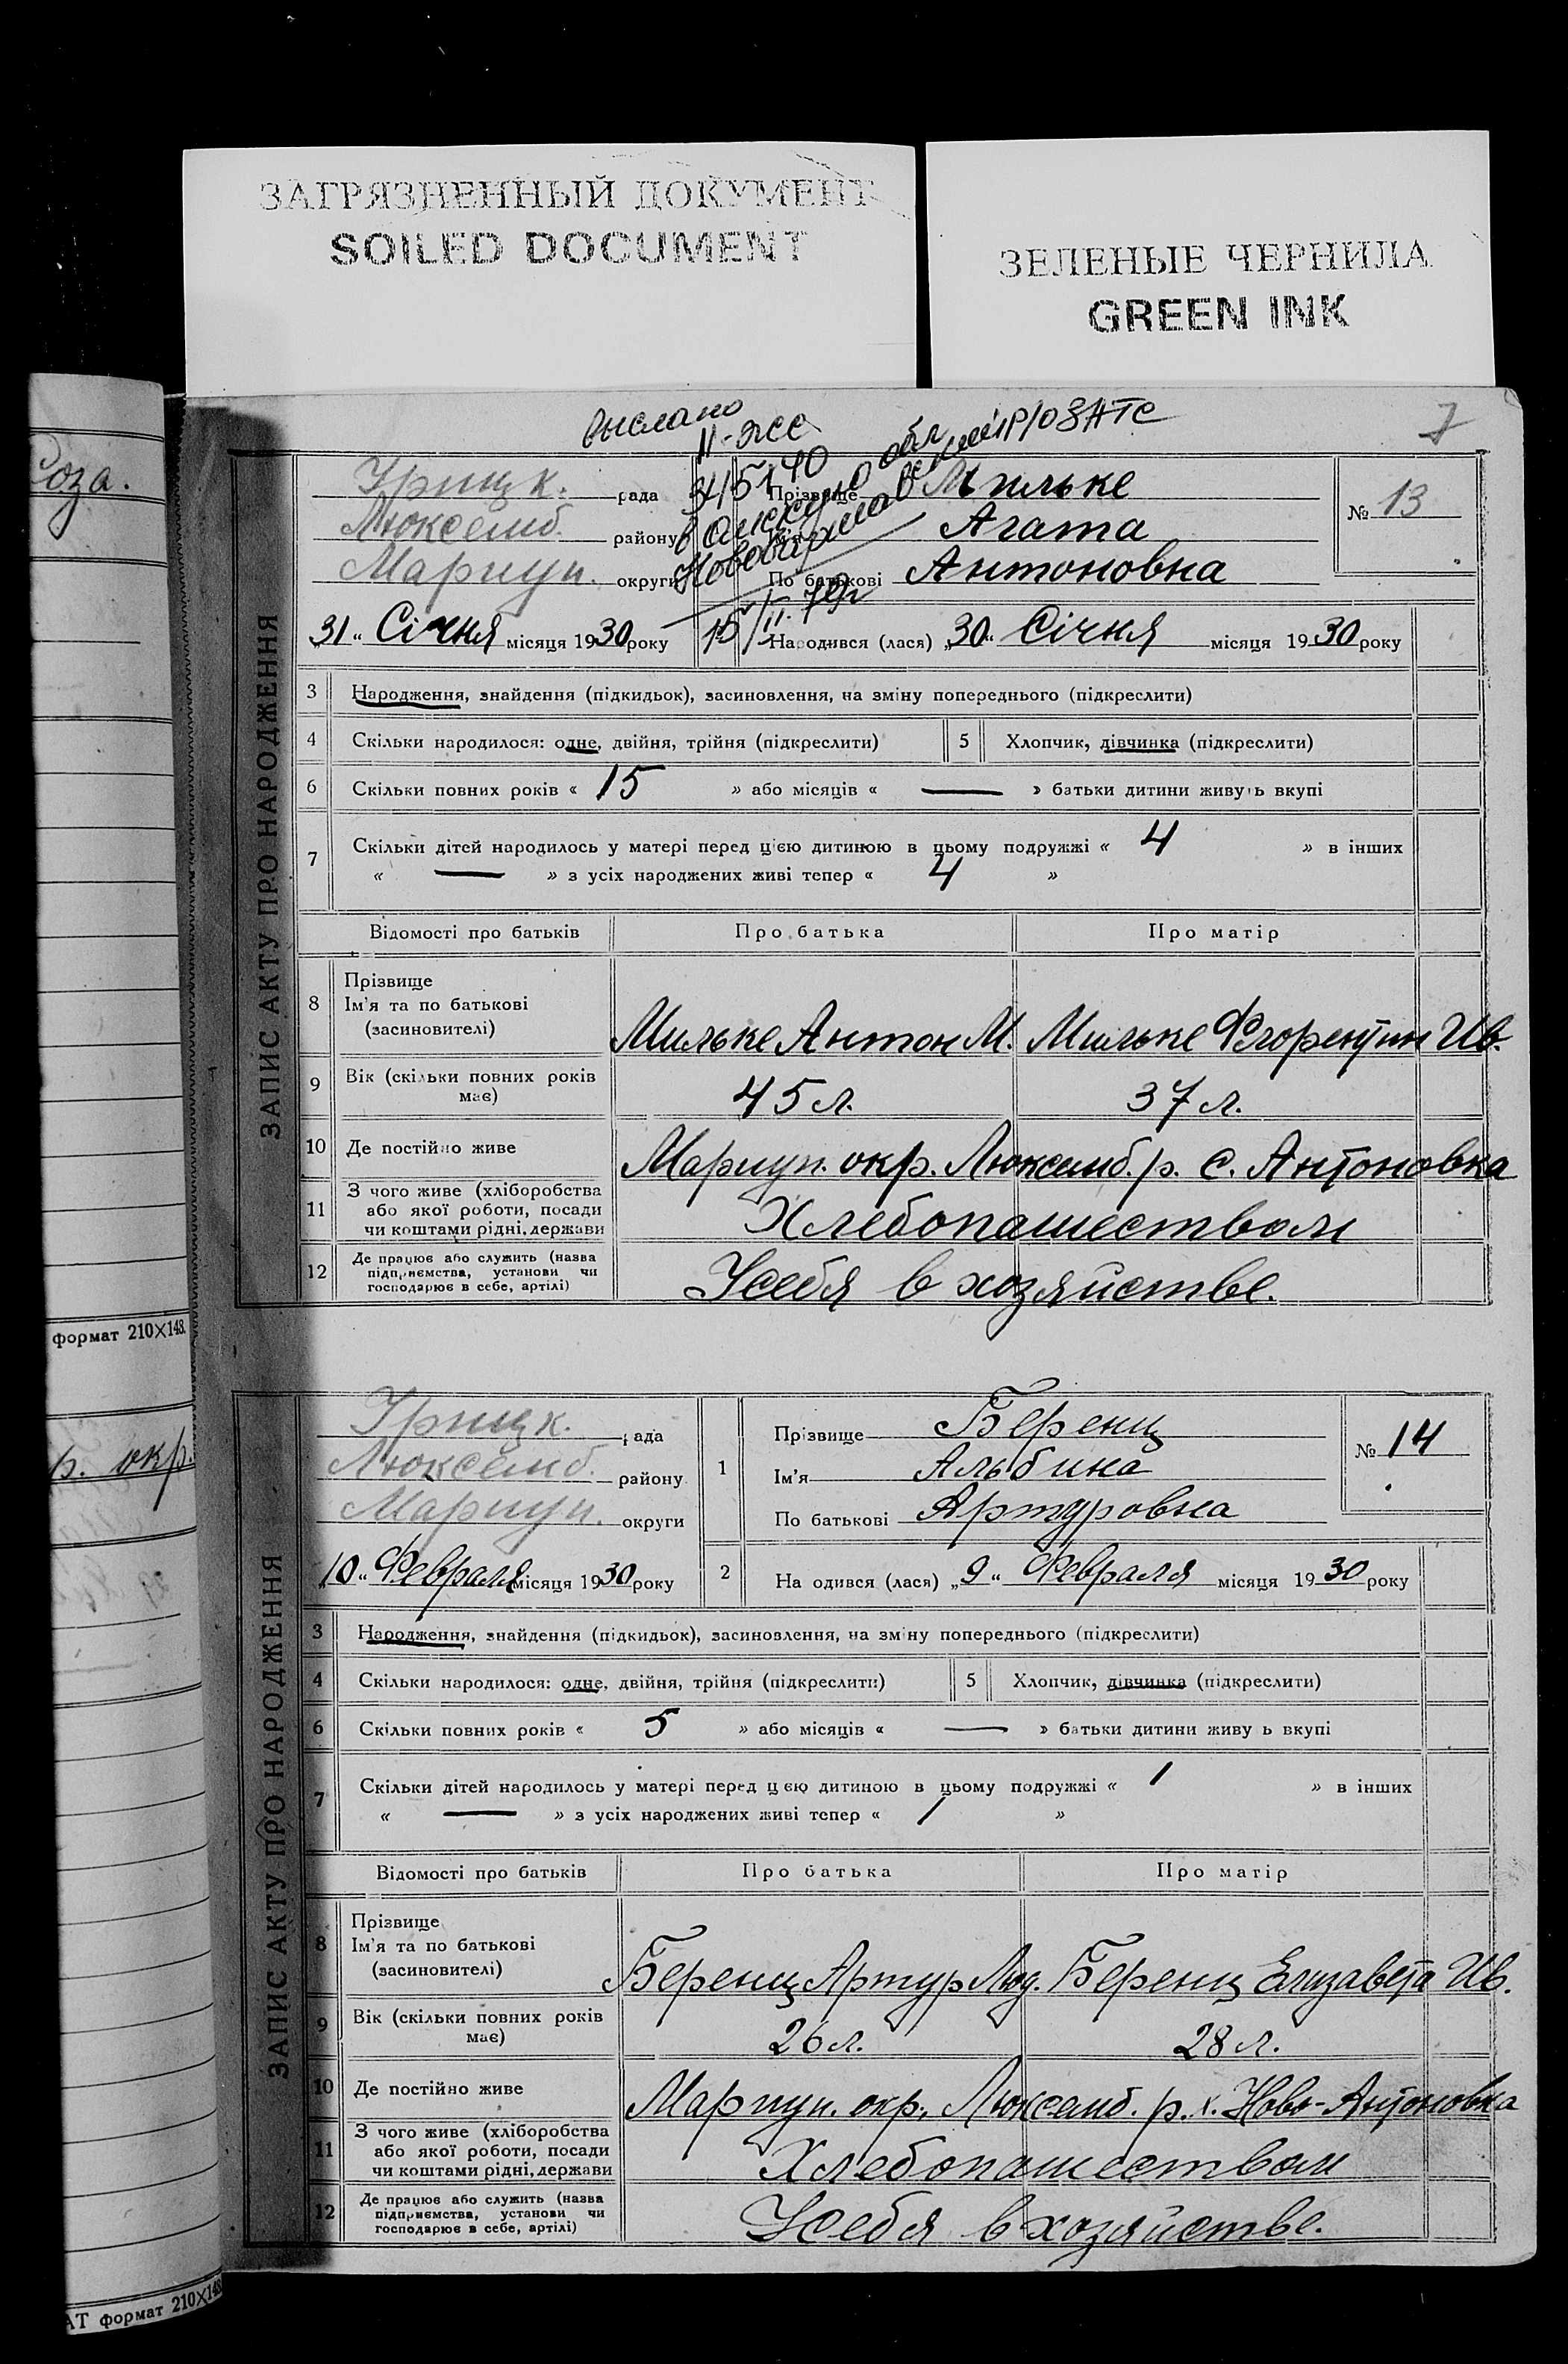 ЗАГРЯЗНЕННЫЙ ДОКУМЕНТ
SOILED DOCUMENT
ЗЕЛЕНЫЕ ЧЕРНИЛА
GREEN INK
7
выслано
ЗАПИС АКТУ ПРО НАРОДЖЕННЯ
Урицк. рада
Люксемб. району
Мариуп. округи
Прізвище Мильке
Агата
По батькові Антоновна
№ 13
„31“ Січня місяця 1930 року
15/II. 79г
Народився (лася) „30“ Січня місяця 1930 року
3 Народження, знайдення (підкидьок), засиновлення, на зміну попереднього (підкреслити)
4 Скільки народилося: одне, двійня, трійня (підкреслити) 5 Хлопчик, дівчинка (підкреслити)
6 Скільки повних років « 15 » або місяців « — » батьки дитини живуть вкупі
7 Скільки дітей народилось у матері перед цією дитиною в цьому подружжі « 4 » в інших
« — » з усіх народжених живі тепер « 4 »
Відомості про батьків Про батька Про матір
8 Прізвище
Ім'я та по батькові
(засиновителі)
Мильке Антон М. Мильке Флорентин Ив.
9 Вік (скільки повних років
має)
45 л. 37 л.
10 Де постійно живе Мариуп. окр. Люксемб. р. с. Антоновка
11 З чого живе (хліборобства
або якої роботи, посади
чи коштами рідні, держави
Хлебопашеством
12 Де працює або служить (назва
підприємства, установи чи
господарює в себе, артілі)
У себя в хозяйстве.
ЗАПИС АКТУ ПРО НАРОДЖЕННЯ
Урицк. рада
Люксемб. району
Мариуп. округи
1 Прізвище Беренц
Ім'я Альбина
По батькові Артуровна
№ 14
„10“ Февраля місяця 1930 року
2 Народився (лася) „9“ Февраля місяця 1930 року
3 Народження, знайдення (підкидьок), засиновлення, на зміну попереднього (підкреслити)
4 Скільки народилося: одне, двійня, трійня (підкреслити) 5 Хлопчик, дівчинка (підкреслити)
6 Скільки повних років « 5 » або місяців « — » батьки дитини живуть вкупі
7 Скільки дітей народилось у матері перед цією дитиною в цьому подружжі « 1 » в інших
« — » з усіх народжених живі тепер « 1 »
Відомості про батьків Про батька Про матір
8 Прізвище
Ім'я та по батькові
(засиновителі)
Беренц Артур Люд. Беренц Елизавета Ив.
9 Вік (скільки повних років
має)
26 л. 28 л.
10 Де постійно живе Мариуп. окр. Люксемб. р. х. Ново-Антоновка
11 З чого живе (хліборобства
або якої роботи, посади
чи коштами рідні, держави
Хлебопашеством
12 Де працює або служить (назва
підприємства, установи чи
господарює в себе, артілі)
У себя в хозяйстве.
формат 210×148.
р. окр.
формат 210×148